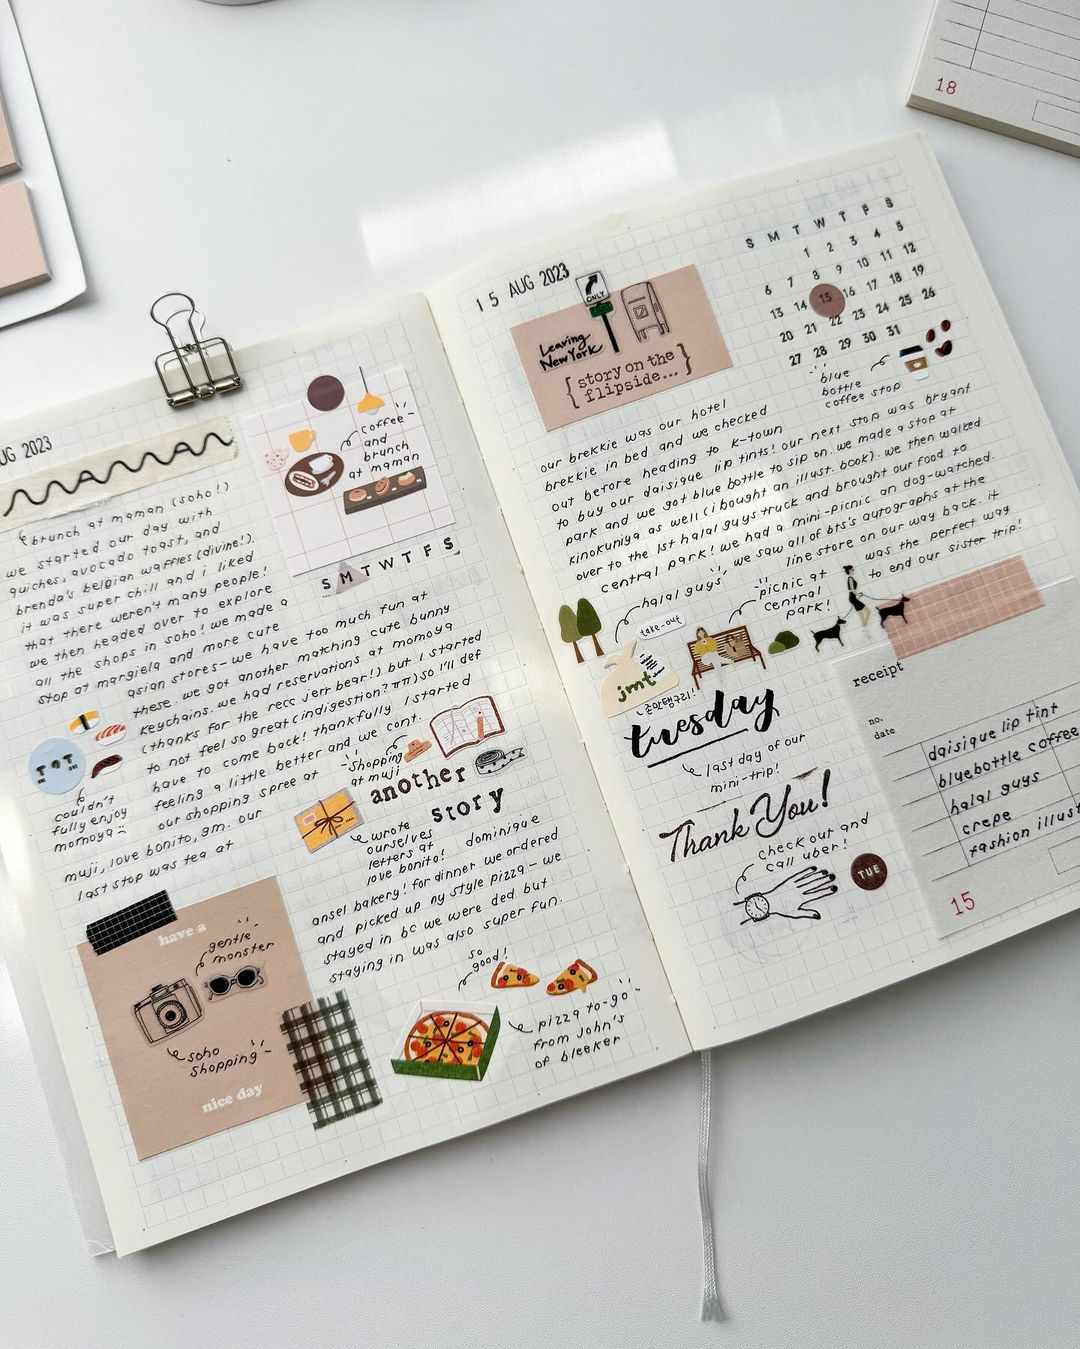 UG 2023
MAMAN
brunch at maman (soho!)
we started our day with
quiches, avocado toast, and
brenda's belgian waffles (divine!).
it was super chill and i liked
that there weren't many people!
we then headed over to explore
all the shops in soho! we made a
stop at margiela and more cute
asian stores- we have too much fun at
these. we got another matching cute bunny
keychains. we had reservations at momoya
(thanks for the recc jerr bear!) but i started
to not feel so great (indigestion? ㅠㅠ) so i'll def
have to come back! thankfully i started
feeling a little better and we cont.
our shopping spree at
muji, love bonito, gm. our
last stop was tea at
coffee
and
brunch
at maman
S M T W T F S
T T
couldn't
fully enjoy
momoya
shopping
at muji
another
story
wrote
ourselves
letters at
love bonito!
dominique
ansel bakery! for dinner we ordered
and picked up ny style pizza - we
stayed in bc we were ded. but
staying in was also super fun.
have a
gentle
monster
soho
shopping
nice day
so
good!
pizza to-go
from john's
of bleeker
15 AUG 2023
ONLY
Leaving
New York
{ story on the
flipside... }
S M T W T F S
1 2 3 4 5
6 7 8 9 10 11 12
13 14 15 16 17 18 19
20 21 22 23 24 25 26
27 28 29 30 31
blue
bottle
coffee stop
our brekkie was our hotel
brekkie in bed and we checked
out before heading to k-town
to buy our daisique lip tints! our next stop was bryant
park and we got blue bottle to sip on. we made a stop at
kinokuniya as well (i bought an illust. book). we then walked
over to the 1st halal guys truck and brought our food to
central park! we had a mini-picnic an dog-watched.
we saw all of bts's autographs at the
line store on our way back. it
was the perfect way
to end our sister trip!
halal guys
take-out
jmt
존맛탱구리!
picnic at
central
park!
tuesday
last day of our
mini-trip!
Thank You!
check out and
call uber!
TUE
receipt
no.
date
daisique lip tint
bluebottle coffee
halal guys
crepe
fashion illust
15
18